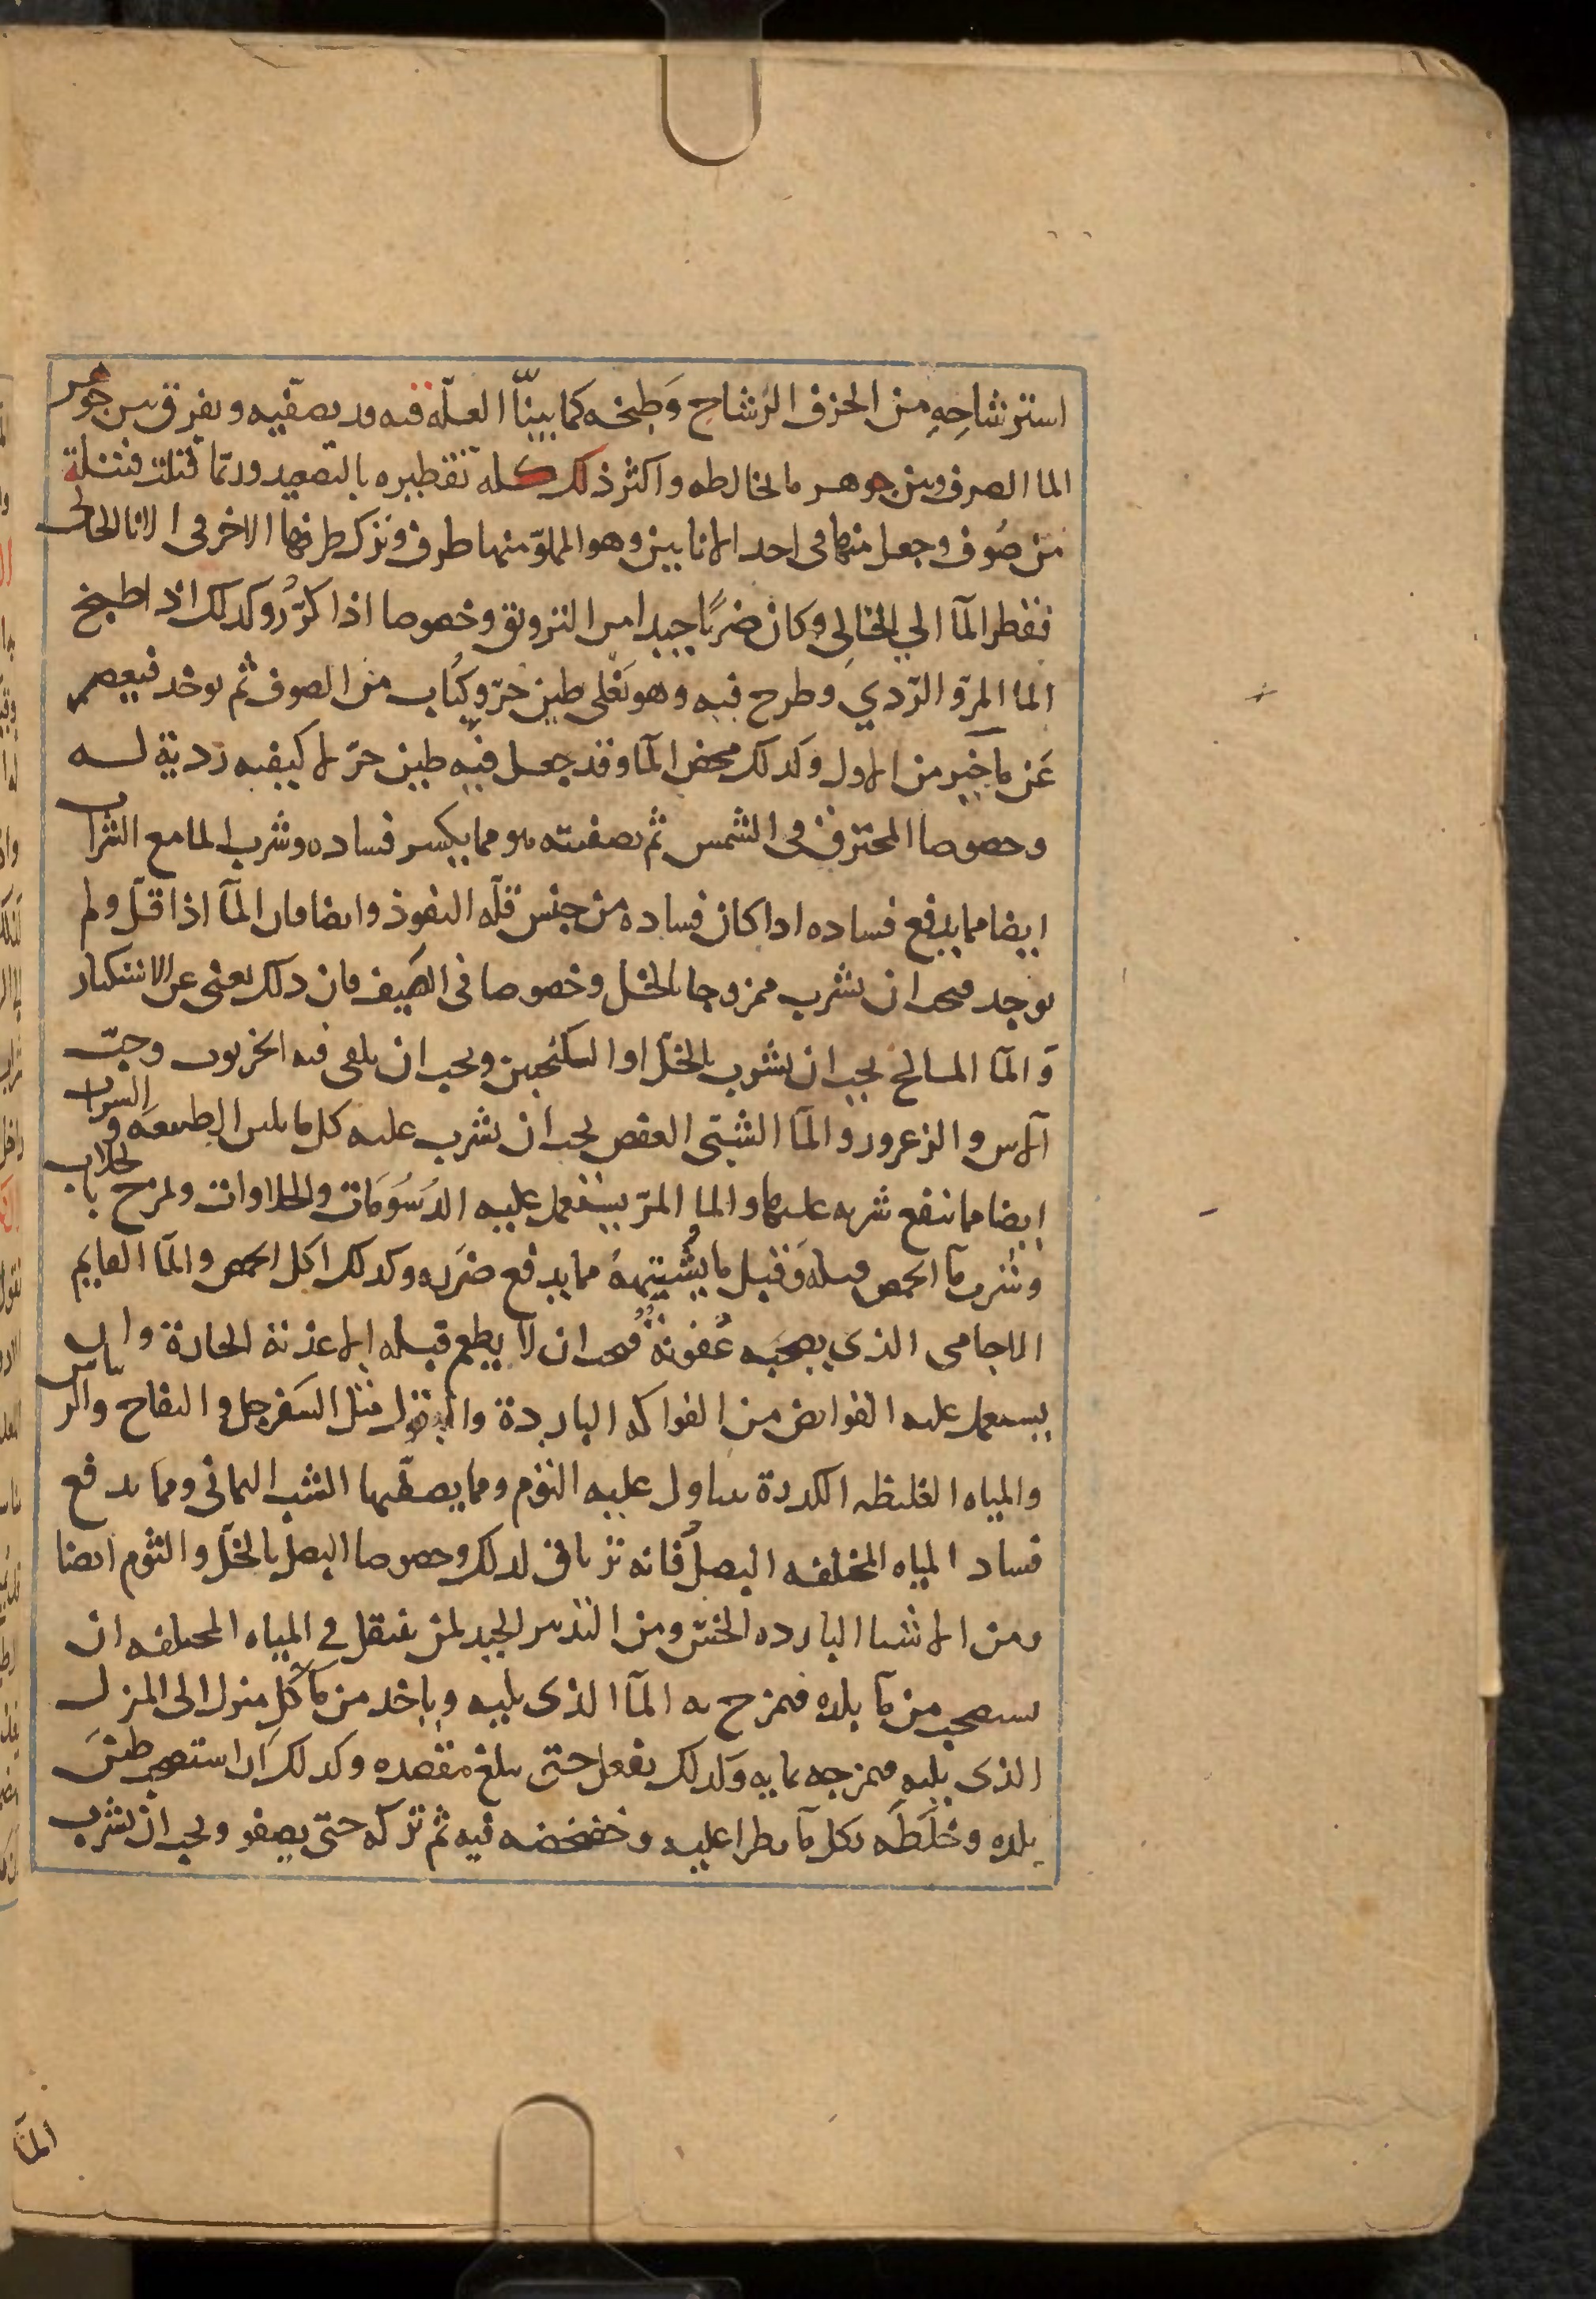 استرشاحِهِ من الخزف الرشاح وَطبخه كما بينّا العلّه فيه قد يصفّيه ويفرق بين جوهر
الما الصرف وبين جوهر ما يخالطه واكثر ذلك كله تقطيره بالتصعيد وربّما فتلت فتيلة
من صُوف وجعل منها فى احد الانايين وهو المملوّ منهما طرف وترك طرفها الاخر فى الانا الخالى
فقطر المآ الي الخالِى وكان ضربًا جيدا من الترويق وخصوصا اذا كرّرُ وكذلك اذا طبخ
الما المرّ والرّدي وطرح فيه وهو يَغْلى طين حرّ وكُباب من الصوف ثم يوخذ فيعصر
عَن مآ خير من الاول وكذلك مخض المآ وقد جعل فيه طين حرّ لا كيفيه رديّة لــه
وخصوصا المحترق فى الشمس ثم تصفيته هو مما يكسر فساده وشرب الما مع الشراب
ايضا مما يدفع فساده اذا كان فساده من جنس قلّه النفوذ وايضا فان المآ اذا قلّ ولم
يوجد فيجب ان يشرب ممزوجا بالخل وخصوصا فى الصَيف فان ذلك يغنى عن الاستكثار
وَ المآ المالح يجب ان يشرب بالخلّ او السكنجبين ويجب ان يلقى فيه الخرنوب وحبّ
الآس والزعرور والمآ الشبّى العفص يجب ان يشرب عليه كل ما يلين الطبيعه والشراب
ايضا مما ينفع شربه عليها والما المرّ يستعمل عليه الدُسُوَمَات والحلاوات ويمزج بالجلاب
وشرب مآ الحمص قبله وَقبل ما يُشبهُهُ مما يدفع ضَرَره وكذلك اكل الحمص والمآ القايم
الاجامى الذي يصحبه عُفونةٌ فيجب ان لا يطعم قبله الاغذية الحارة وان
يستعمل عليه القوابض من الفواكه الباردة والبقول مثل السَفرجل والتفاح والريباس
والمياه الغليظه الكدرة يتناول عليه الثوم ومما يصفّيها الشب اليمانى ومما يدفع
فساد المياه المختلفه البصلُ فانه ترياق لذلك وخصوصا البصل بالخلّ والثوم ايضا
ومن الاشيا البارده الخسّ ومن التدبير الجيد لمن ينتقل في المياه المختلفه ان
يستصحب من مآ بلده فيمزج به المآ الذى يليه وياخذ من مآ كل منزل الى المنزل
الذى يليه فيمزجه بمايه وَكذلك يفعل حتى يبلغ مقصده وكذلك ان استصحب طينَ
بلده وخلَطَه بكل مآ يطرا عليه وخضخضه فيه ثم تركه حتى يصفو ويجب ان يشرب
المآ